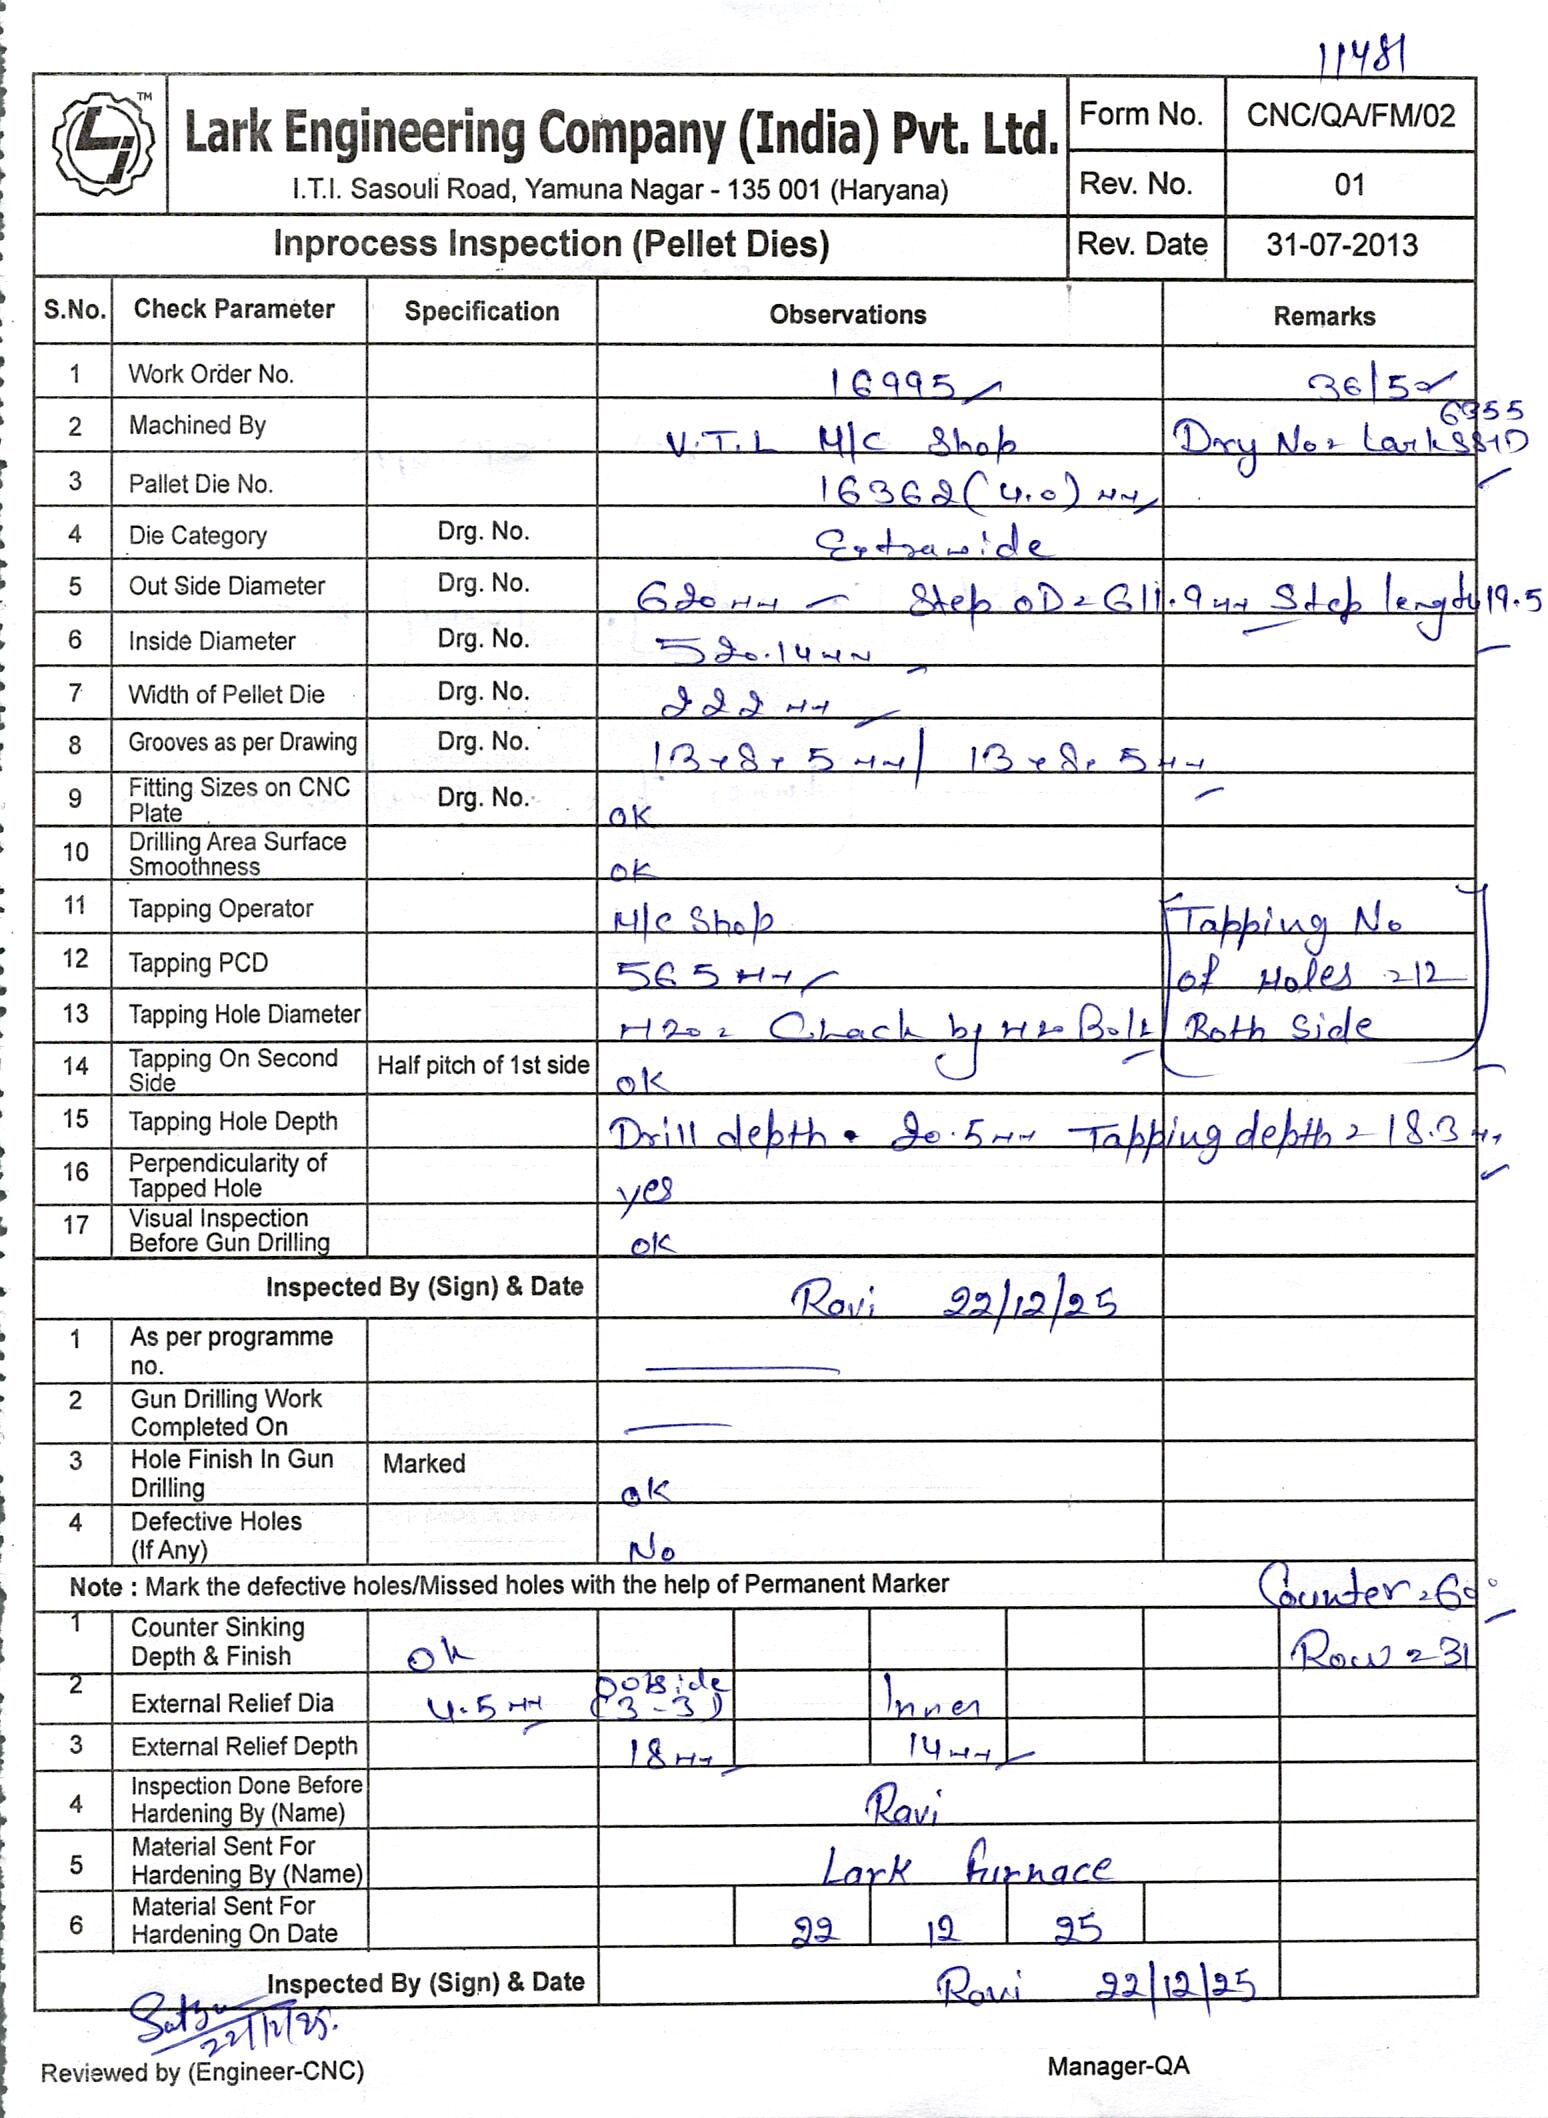 11481
TM
Lark Engineering Company (India) Pvt. Ltd.
I.T.I. Sasouli Road, Yamuna Nagar - 135 001 (Haryana)
Form No. CNC/QA/FM/02
Rev. No. 01
Inprocess Inspection (Pellet Dies) Rev. Date 31-07-2013
S.No. Check Parameter Specification Observations Remarks
1 Work Order No. 16995 36/52
2 Machined By V.T.L M/C Shop Dry No = Lark
3 Pallet Die No. 16362 (4.0) mm
4 Die Category Drg. No. Extrawide
5 Out Side Diameter Drg. No. 620 mm Step OD = 611.9 mm Step length 19.5
6 Inside Diameter Drg. No. 520.14 mm
7 Width of Pellet Die Drg. No. 222 mm
8 Grooves as per Drawing Drg. No. 13 × 8.5 mm / 13 × 8.5 mm
9 Fitting Sizes on CNC Plate Drg. No. OK
10 Drilling Area Surface Smoothness OK
11 Tapping Operator M/C Shop Tapping No
12 Tapping PCD 565 mm of Holes = 12
13 Tapping Hole Diameter M20 = Chack by M20 Bolt Both Side
14 Tapping On Second Side Half pitch of 1st side OK
15 Tapping Hole Depth Drill depth = 20.5 mm Tapping depth = 18.3 mm
16 Perpendicularity of Tapped Hole yes
17 Visual Inspection Before Gun Drilling OK
Inspected By (Sign) & Date Ravi 22/12/25
1 As per programme no.
2 Gun Drilling Work Completed On
3 Hole Finish In Gun Drilling Marked OK
4 Defective Holes (If Any) No
Note : Mark the defective holes/Missed holes with the help of Permanent Marker Counter = 60°
1 Counter Sinking Depth & Finish OK Row = 31
2 External Relief Dia 4.5 mm (3-3) Inner
3 External Relief Depth 18 mm 14 mm
4 Inspection Done Before Hardening By (Name) Ravi
5 Material Sent For Hardening By (Name) Lark Furnace
6 Material Sent For Hardening On Date 22 12 25
Inspected By (Sign) & Date Ravi 22/12/25
22/12/25.
Reviewed by (Engineer-CNC) Manager-QA